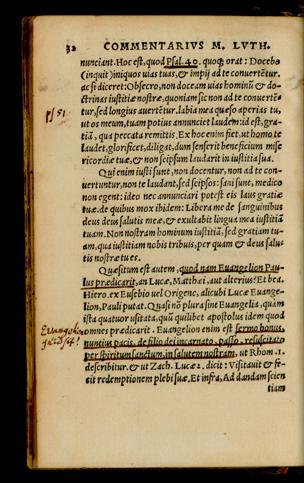 32 COMMENTARIVS M. LVTH.
nunciant. Hoc est, quod Psal. 40. quoq; orat: Docebo
(inquit) iniquos uias tuas, & impij ad te conuertẽtur.
ac si diceret: Obsecro, non doceam uias hominũ & do-
ctrinas iustitiæ nostræ, quoniam sic non ad te conuertẽ-
tur, sed longius auertẽtur. Labia mea quæso aperias tu,
ut os meum, tuam potius annunciet laudem: id est, gra-
tiã, qua peccata remittis. Ex hoc enim fiet, ut homo te
laudet, glorificet, diligat, dum senserit beneficium mise
ricordiæ tuæ, & non seipsum laudarit in iustitia sua.
ps 51
Qui enim iusti sunt, non docentur, non ad te con-
uertuntur, non te laudant, sed seipsos: sani sunt, medico
non egent: ideo nec annunciari potest eis laus gratiæ
tuæ. de quibus mox ibidem: Libera me de sanguinibus
deus deus salutis meæ, & exultabit lingua mea iustitiã
tuam. Non nostram hominum iustitiã, sed gratiam tu-
am, qua iustitiam nobis tribuis, per quam & deus salu-
tis nostræ tu es.
Quæsitum est autem, quod nam Euangelion Pau-
lus prædicarit, an Lucæ, Matthæi, aut alterius? Et bea.
Hiero. ex Eusebio uel Origene, alicubi Lucæ Euange-
lion, Pauli putat. Quasi nõ plura sint Euangelia, quàm
ista quatuor usitata, quũ quilibet apostolus idem quod
omnes prædicarit. Euangelion enim est sermo bonus,
nuntius pacis, de filio dei incarnato, passo, resuscitato
per spiritum sanctum, in salutem nostram, ut Rhom. 1.
describitur. & ut Zach. Lucæ 2. dicit: Visitauit & fe-
cit redemptionem plebi suæ, Et infra, Ad dandam scien
tiam